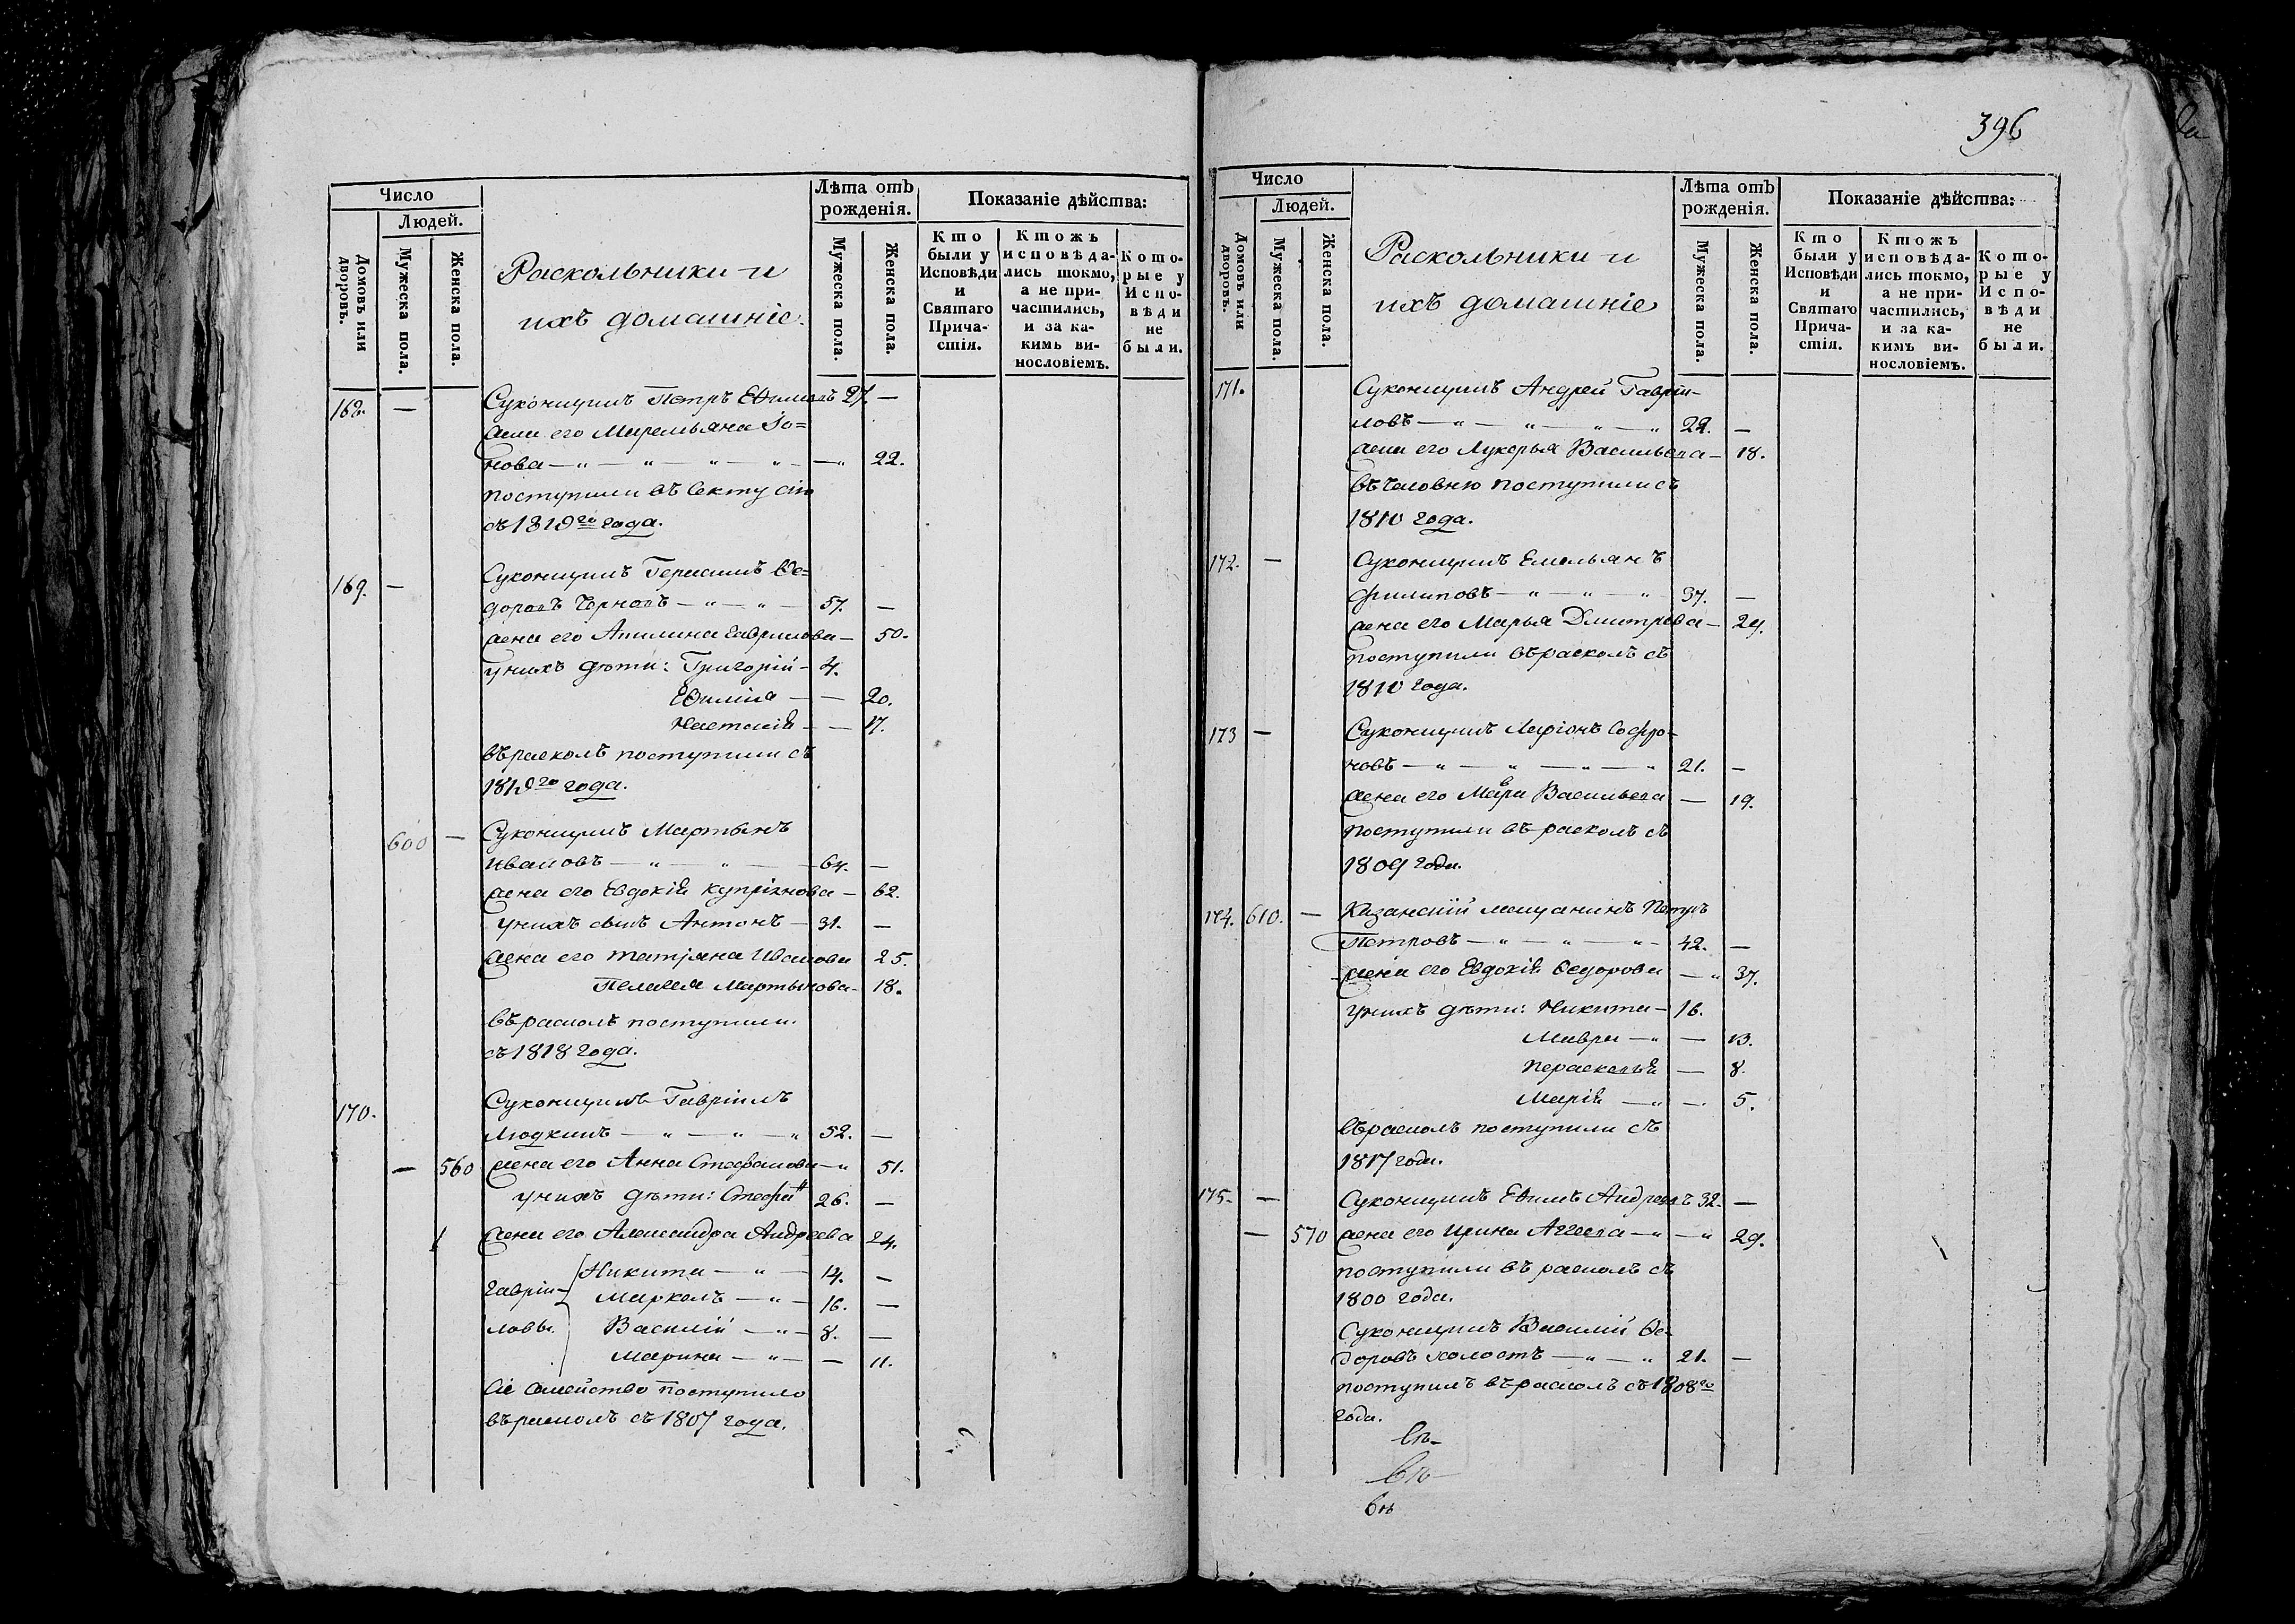 Число
Людей.
Домовъ или дворовъ.
Мужеска пола.
Женска пола.
Раскольники и
ихъ домашніе.
Лѣта отъ
рожденія.
Мужеска пола.
Женска пола.
Показаніе дѣйства:
Кто
были у
Исповѣди
и
Святаго
Прича-
стія.
Ктожъ
исповѣда-
лись токмо,
а не при-
частились,
и за ка-
кимъ ви-
нословіемъ.
Кото-
рые у
Испо-
вѣди
не
были.
168. — Суконщикъ Петръ Евѳимовъ 27. —
жена его Маремьяна
нова — „ — „ — „ — „ — „ 22.
поступили въ секту сію
съ 1810го года.
169. — Суконщикъ Герасимъ Ѳе=
доровъ Черновъ — „ — „ — 57. —
жена его Акилина Гаврилова — 50.
у нихъ дѣти: Григорій — 4.
Евѳимія — — 20.
Настасія — — 17.
въ расколъ поступили съ
года.
600 — Суконщикъ Мартынъ
Ивановъ — „ — „ — 64. —
жена его Евдокія Купріянова — 62.
у нихъ сынъ Антонъ — 31. —
жена его Татіана Иванова 25.
Пелагея Мартынова — 18.
въ расколъ поступили
съ 1818 года.
170. Суконщикъ Гавріилъ
Людкинъ — „ — „ — „ 52. —
— 560 жена его Анна Стефанова — „ 51.
у нихъ дѣти: 26. —
1 жена его Александра Андреева 24.
Никита — „ — 14. —
Гаврі-
Маркелъ — „ — 16. —
ловы. Василій — „ — 8. —
Марина — „ — — 11.
Сіе семейство поступило
въ расколъ съ 1807 года.
396
Число
Людей.
Домовъ или дворовъ.
Мужеска пола.
Женска пола.
Раскольники и
ихъ домашніе
Лѣта отъ
рожденія.
Мужеска пола.
Женска пола.
Показаніе дѣйства:
Кто
были у
Исповѣди
и
Святаго
Прича-
стія.
Ктожъ
исповѣда-
лись токмо,
а не при-
частились,
и за ка-
кимъ ви-
нословіемъ.
Кото-
рые у
Испо-
вѣди
не
были.
171. Суконщикъ Андрей Гаврі-
ловъ — „ — „ — „ — „ 22. —
жена его Лукерья Васильева — 18.
въ часовню поступили съ
1810 года.
172. — Суконщикъ Емельянъ
Филиповъ — „ — „ — „ 37. —
жена его Марья Дмитрева — 24.
поступили въ расколъ съ
1810 года.
173 — Суконщикъ Ларіонъ Софро-
новъ — „ — „ — „ — „ 21. —
жена его Мавра Васильева — 19.
поступили въ расколъ съ
1809 года.
174. 610. — Казанскій мещанинъ Петръ
Петровъ — „ — „ — „ — 42. —
жена его Евдокія Ѳедорова — „ 37.
у нихъ дѣти: Никита — 16.
Мавра — „ — 13.
Параскевія — 8.
Марія — „ — 5.
въ расколъ поступили съ
1817 года.
175. — Суконщикъ Евѳимъ Андреевъ 32. —
— 570 жена его Ирина Аггеева — „ — „ 29.
поступили въ расколъ съ
1800 года.
Суконщикъ Василій Ѳе-
доровъ холостъ — „ — „ 21. —
поступилъ въ расколъ съ 1808го
года.